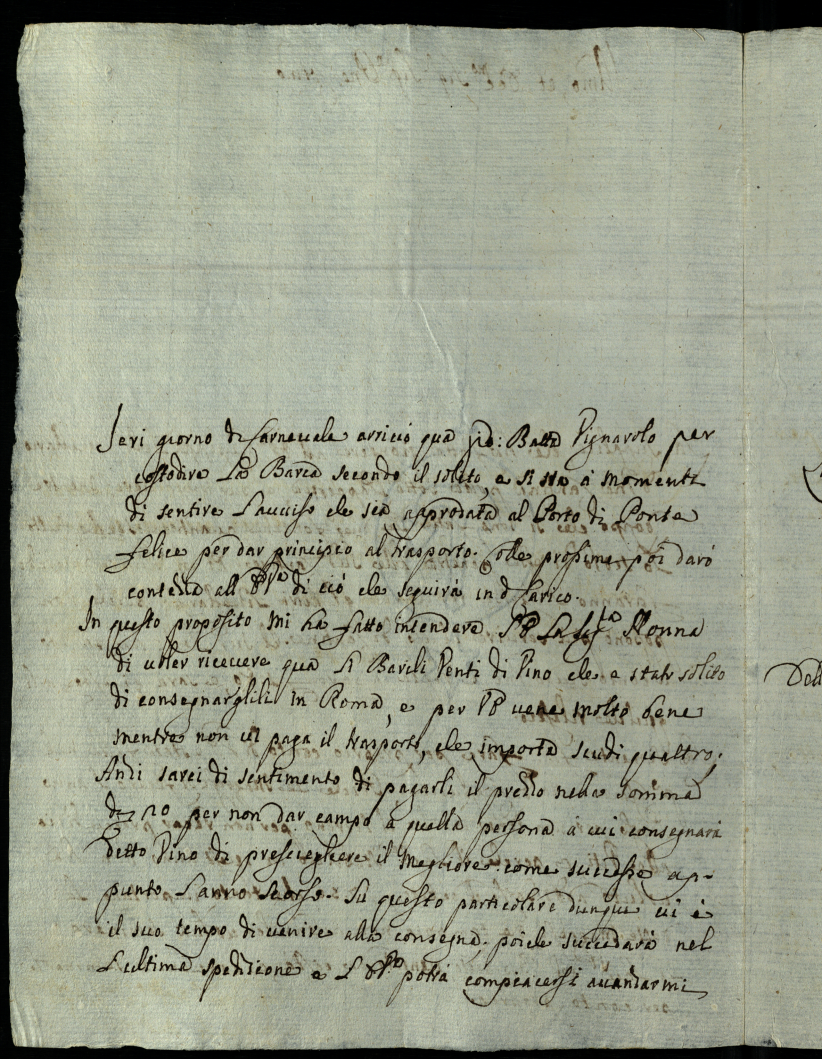 Jeri giorno di Carnevale arrivò quà Gio: Batta Vignarolo per
custodire La Barca secondo il solito, e si stà à momenti
di sentire L'avviso che sia approdata al Porto di Ponte
felice per dar principio al trasporto. Colle prossime poi darò
contezza all di ciò che seguirà in d.º Carico.
In questo proposito mi hà fatto intendere La Sig.ra Nonna
di voler ricevere quà li Barili Venti di Vino che è stata solito
di consegnarglili in Roma, e per viene molto bene
mentre non vi paga il trasporto, che importa scudi quattro;
Anzi sarei di sentimento di pagarli il prezzo nella somma
di 20 per non dar campo à quella persona à cui consegnarà
detto Vino di presciegliere il megliore come successe ap-
punto L'anno scorso. Sù questo particolare dunque vi è
il suo tempo di venire alla consegna, poiche succedarà nel
L'ultima spedizione e L potrà compiacersi avanzarmi